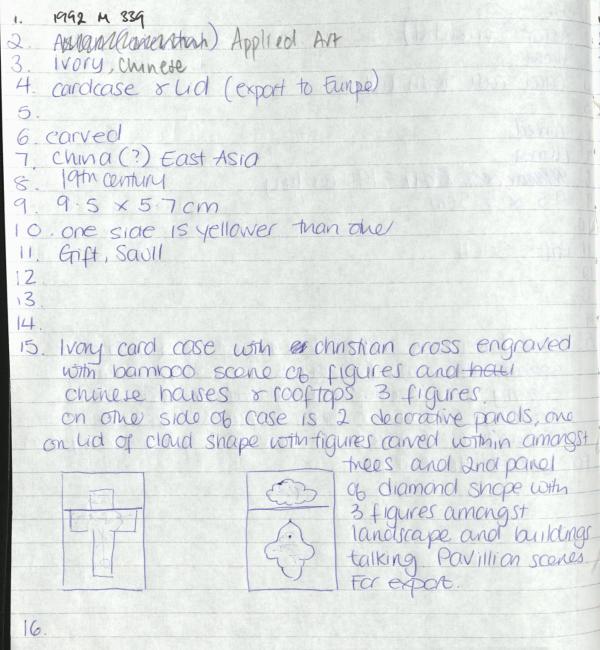 1. 1992 M 339
2. Applied Art
3. Ivory, Chinese
4. cardcase & Lid (export to Europe)
5.
6. carved
7. China (?) East Asia
8. 19th century
9. 9.5 x 5.7 cm
10. one side is yellower than one
11. Gift, Saull
12
13.
14.
15. Ivory card case with christian cross engraved
with bamboo scene of figures and
chinese houses & rooftops 3 figures.
on other side of case is 2 decorative panels, one
on lid of cloud shape with figures carved within amongst
trees and 2nd panel
of diamond shape with
3 figures amongst
landscape and buildings
talking. Pavillion scenes
For export.
16.